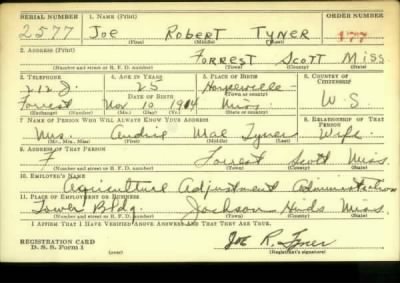 SERIAL NUMBER 1. NAME (Print) ORDER NUMBER
2577 Joe Robert Tyner
(First) (Middle) (Last)
2. ADDRESS (Print)
Forrest Scott Miss
(Number and street or R. F. D. number) (Town) (County) (State)
3. TELEPHONE 4. AGE IN YEARS 5. PLACE OF BIRTH 6. COUNTRY OF CITIZENSHIP
212J. 25
DATE OF BIRTH (Town or county)
Forrest Nov 10 Miss. U.S.
(Exchange) (Number) (Mo.) (Day) (Yr.) (State or country)
7. NAME OF PERSON WHO WILL ALWAYS KNOW YOUR ADDRESS 8. RELATIONSHIP OF THAT PERSON
Mrs. Mae Tyner Wife
(Mr., Mrs., Miss) (First) (Middle) (Last)
9. ADDRESS OF THAT PERSON
F Forrest Scott Miss.
(Number and street or R. F. D. number) (Town) (County) (State)
10. EMPLOYER'S NAME
Agriculture Adjustment Administration
11. PLACE OF EMPLOYMENT OR BUSINESS
Tower Bldg. Jackson Hinds Miss.
(Number and street or R. F. D. number) (Town) (County) (State)
I AFFIRM THAT I HAVE VERIFIED ABOVE ANSWERS AND THAT THEY ARE TRUE.
REGISTRATION CARD
D. S. S. Form 1 (over)
Joe R. Tyner
(Registrant's signature)